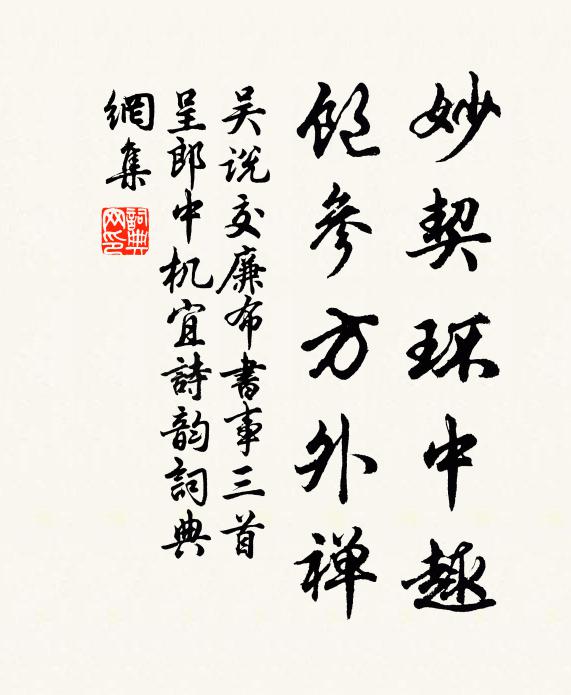 妙契环中趣
饱参方外禅
吴说交廉布書事三首
呈郎中机宜詩韵詞典
網集
詞典网印